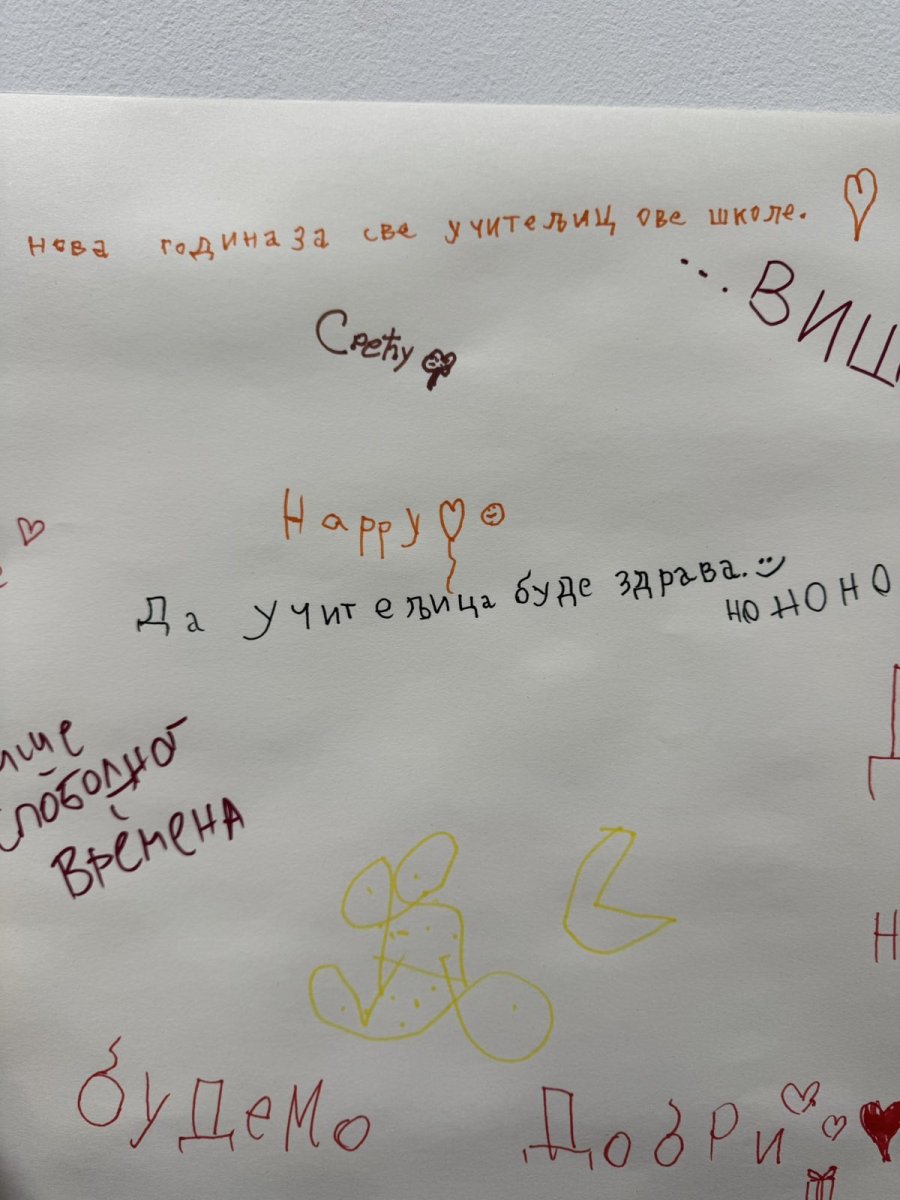 нова година за све учитељиц ове школе.
...ВИШ
Срећу
Happy
Да учитељица буде здрава.
HO HO HO
слободног
времена
будемо добри